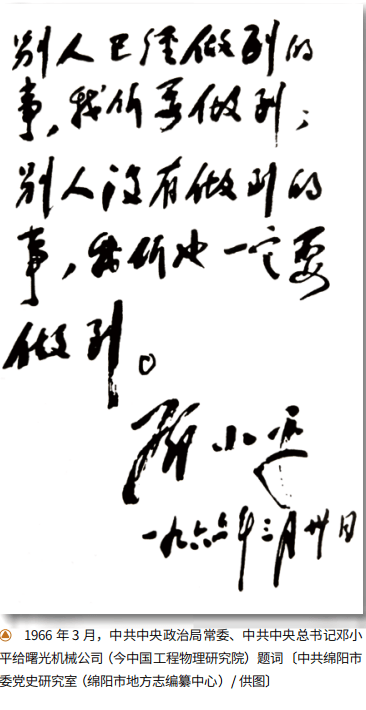 别人已经做到的
事，我们要做到；
别人没有做到的
事，我们也一定要
做到。
邓小平
一九六六年三月卅日
1966 年 3 月，中共中央政治局常委、中共中央总书记邓小
平给曙光机械公司（今中国工程物理研究院）题词〔中共绵阳市
委党史研究室（绵阳市地方志编纂中心）/ 供图〕